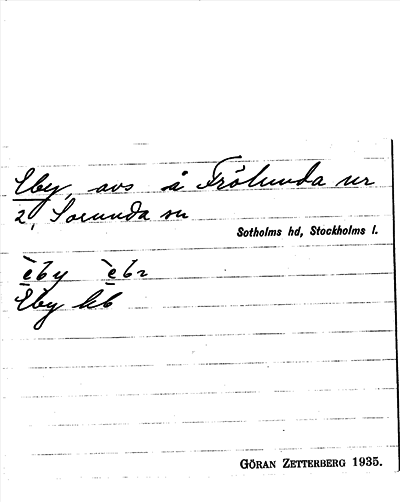 Eby, avs å Frölunda nr
2, Sorunda sn
Sotholms hd, Stockholms l.
èby èbr
Eby hb
GÖRAN ZETTERBERG 1935.